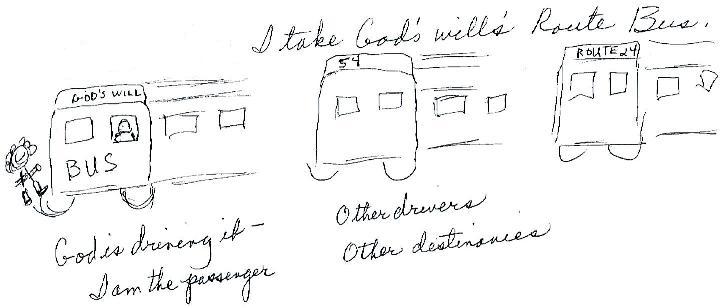 I take God's will's Route Bus.
GOD'S WILL
BUS
54
ROUTE 24
God is drivering it —
I am the passenger
Other drivers
Other destinovies